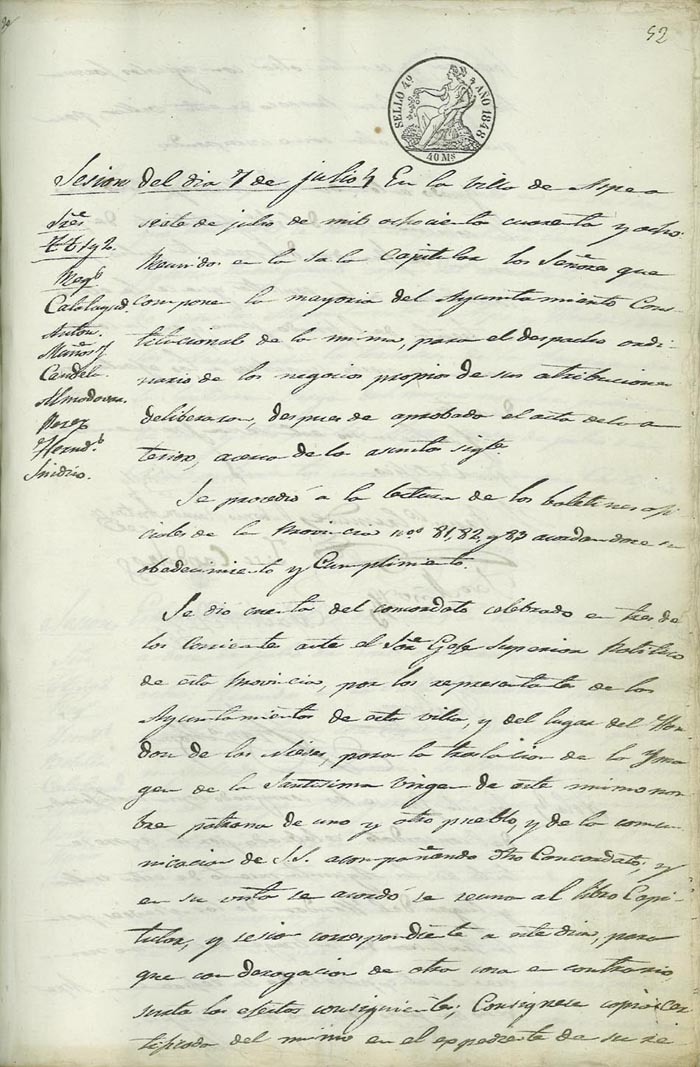 52
SELLO 4º AÑO 1848
40 Ms
Sesion del dia 7 de julio En la villa de Aspe a
siete de julio de mil ochociento cuarenta y ocho
Reunidos en la Sala Capitular los Señores que
compone la mayoria del Ayuntamiento Cons-
titucional de la misma, para el despacho ordi-
nario de los negocios propios de sus atribuciones
deliberaron, despues de aprobada el acta de la an-
terior, acerca de los asuntos sigtes.
Sres
Calatayud.
Anton.
Muñoz
Candela.
Almodovar.
Perez
Hernd.
Se procedió a la lectura de los boletines ofi-
ciales de la Provincia nos 81, 82, y 83 acordandose su
obedecimiento y Cumplimiento.
Se dio cuenta del concordato celebrado en tres de
los corriente ante el Señor Gefe Superior Politico
de esta Provincia, por los representante de los
Ayuntamientos de esta villa, y del lugar del Hon-
don de las Nieves, para la traslacion de la Yma-
gen de la Santisima Virgen de este mismo nom-
bre patrona de uno y otro pueblo, y de la comu-
nicacion de S.S. acompañando dho Concordato, y
en su vista se acordó se reuna al libro Capi-
tular, y sesion correspondiente a este dia, para
que con derogacion de otra cosa en contrario
surta los efectos consiguientes; Consignese copia cer-
tificada del mismo en el expediente de su re